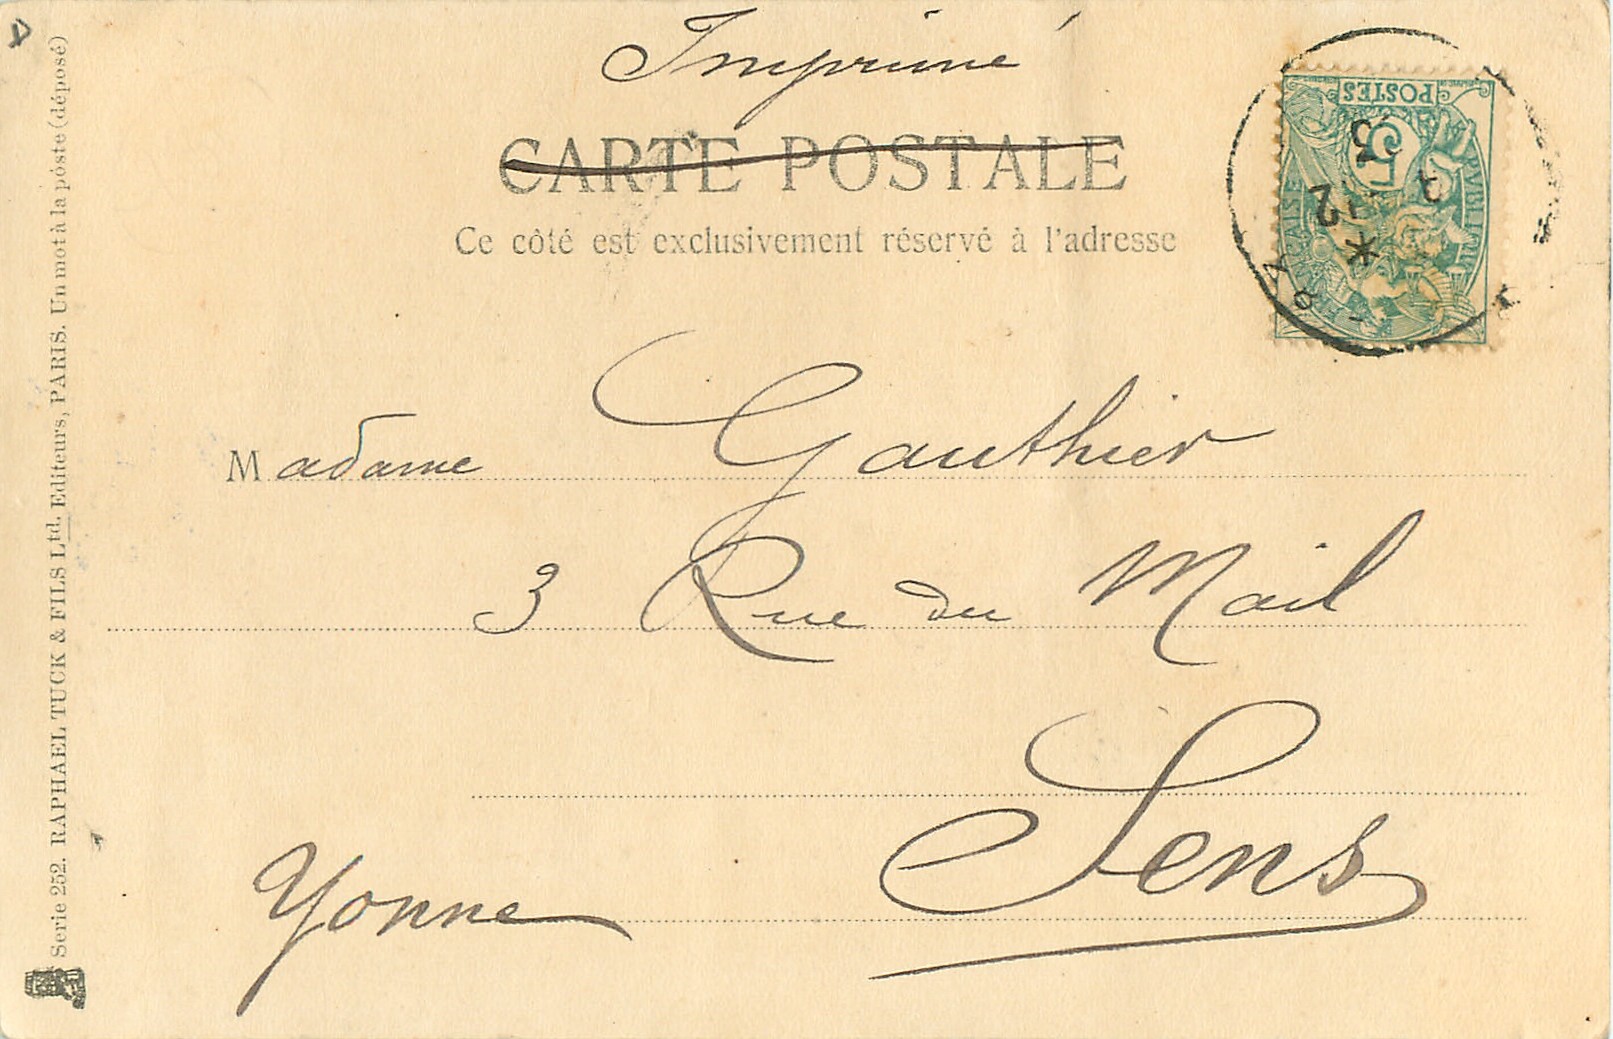 Imprimé
CARTE POSTALE
Ce côté est exclusivement réservé à l'adresse
POSTES
5
Madame Gauthier
3 Rue du Mail
Sens
Yonne
Serie 252. RAPHAEL TUCK & FILS Ltd. Editeurs, PARIS. Un mot à la pòste (déposé)